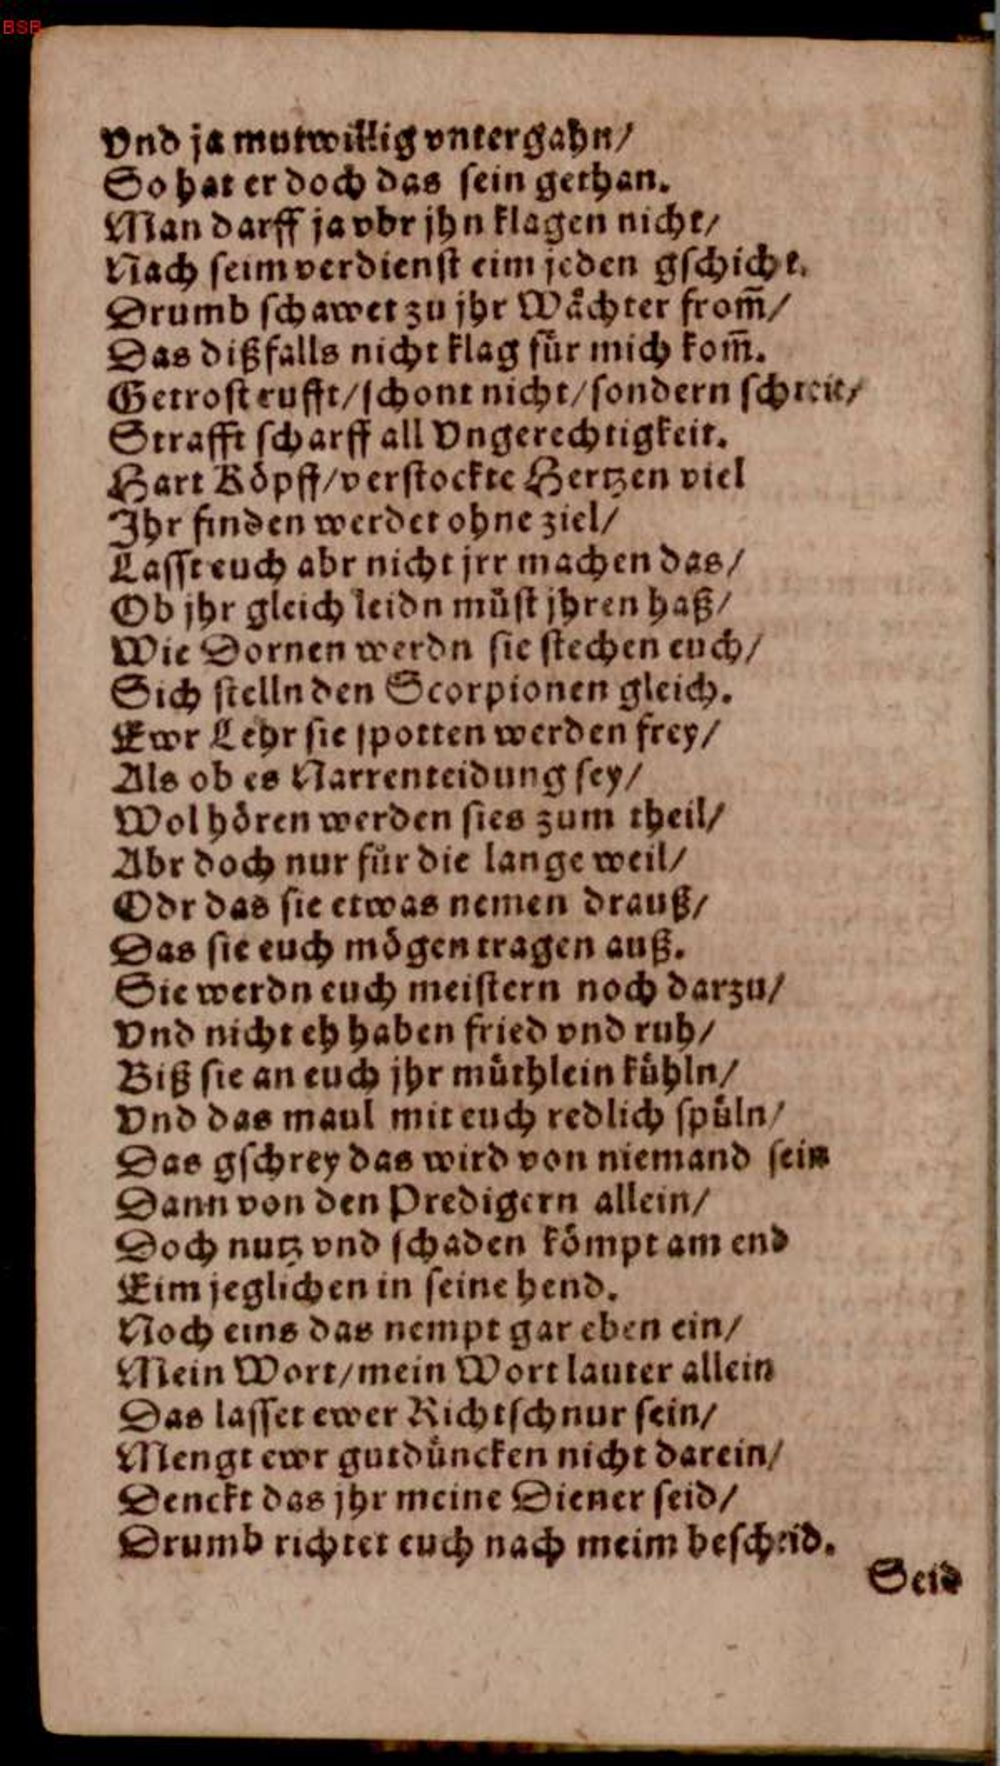 BSB
Vnd ja mutwillig vntergahn/
So hat er doch das sein gethan.
Man darff ja vbr jhn klagen nicht/
Nach seim verdienst eim jeden gschicht.
Drumb schawet zu jhr Waͤchter from̃/
Das dißfalls nicht klag fuͤr mich kom̃.
Getrost rufft/schont nicht/sondern schreit/
Strafft scharff all Vngerechtigkeit.
Hart Koͤpff/verstockte Hertzen viel
Jhr finden werdet ohne ziel/
Lasst euch abr nicht jrr machen das/
Ob jhr gleich leidn muͤst jhren haß/
Wie Dornen werdn sie stechen euch/
Sich stelln den Scorpionen gleich.
Ewr Lehr sie spotten werden frey/
Als ob es Narrenteidung sey/
Wol hoͤren werden sies zum theil/
Abr doch nur fuͤr die lange weil/
Odr das sie etwas nemen drauß/
Das sie euch moͤgen tragen auß.
Sie werdn euch meistern noch darzu/
Vnd nicht eh haben fried vnd ruh/
Biß sie an euch jhr muͤthlein kuͤhln/
Vnd das maul mit euch redlich spuͤln/
Das gschrey das wird von niemand sein
Dann von den Predigern allein/
Doch nutz vnd schaden koͤmpt am end
Eim jeglichen in seine hend.
Noch eins das nempt gar eben ein/
Mein Wort/mein Wort lauter allein
Das lasset ewer Richtschnur sein/
Mengt ewr gutduͤncken nicht darein/
Denckt das jhr meine Diener seid/
Drumb richtet euch nach meim bescheid.
Seid